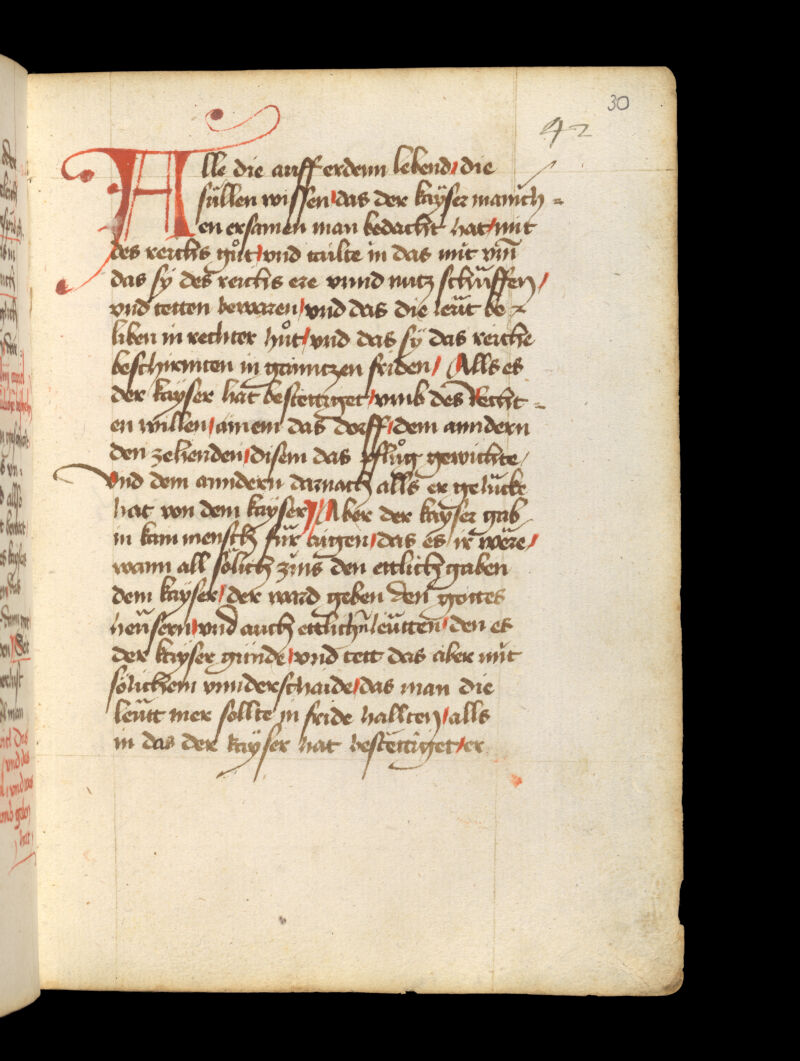 30
42
Alle die auff erdenn lebend / die
süllen wissen / das der kayser manich=
en ersamen man bedacht hat / mit
des reichs gůt / vnd tailte in das mit
das sy des reichs ere vnnd nutz schüffen /
vnd tetten bewaren / vnd das die leüt be
liben in rechter hůt / vnd das sy das reiche
beschirmten in gannntzen friden / Alls es
der kayser hat bestettiget / vmb des Recht=
en willen / ainem das dorff / dem anndern
den zehenden / disem das pflůg gewichte /
Vnd dem anndern darnach alls er gelücke
hat von dem kayser / Aber der kayser gab
in kain mensch für aigen / das es ir were /
wann all sölich zins den ettlich gaben
dem kayser / der ward geben den gottes
heüsern / vnd auch ettlichn leütten / den es
der kayser günde / vnd tett das aber mit
sölichem vnnderschaide / das man die
leütt mer sollte in fride hallten / alls
in das der kayser hat bestettiget / er